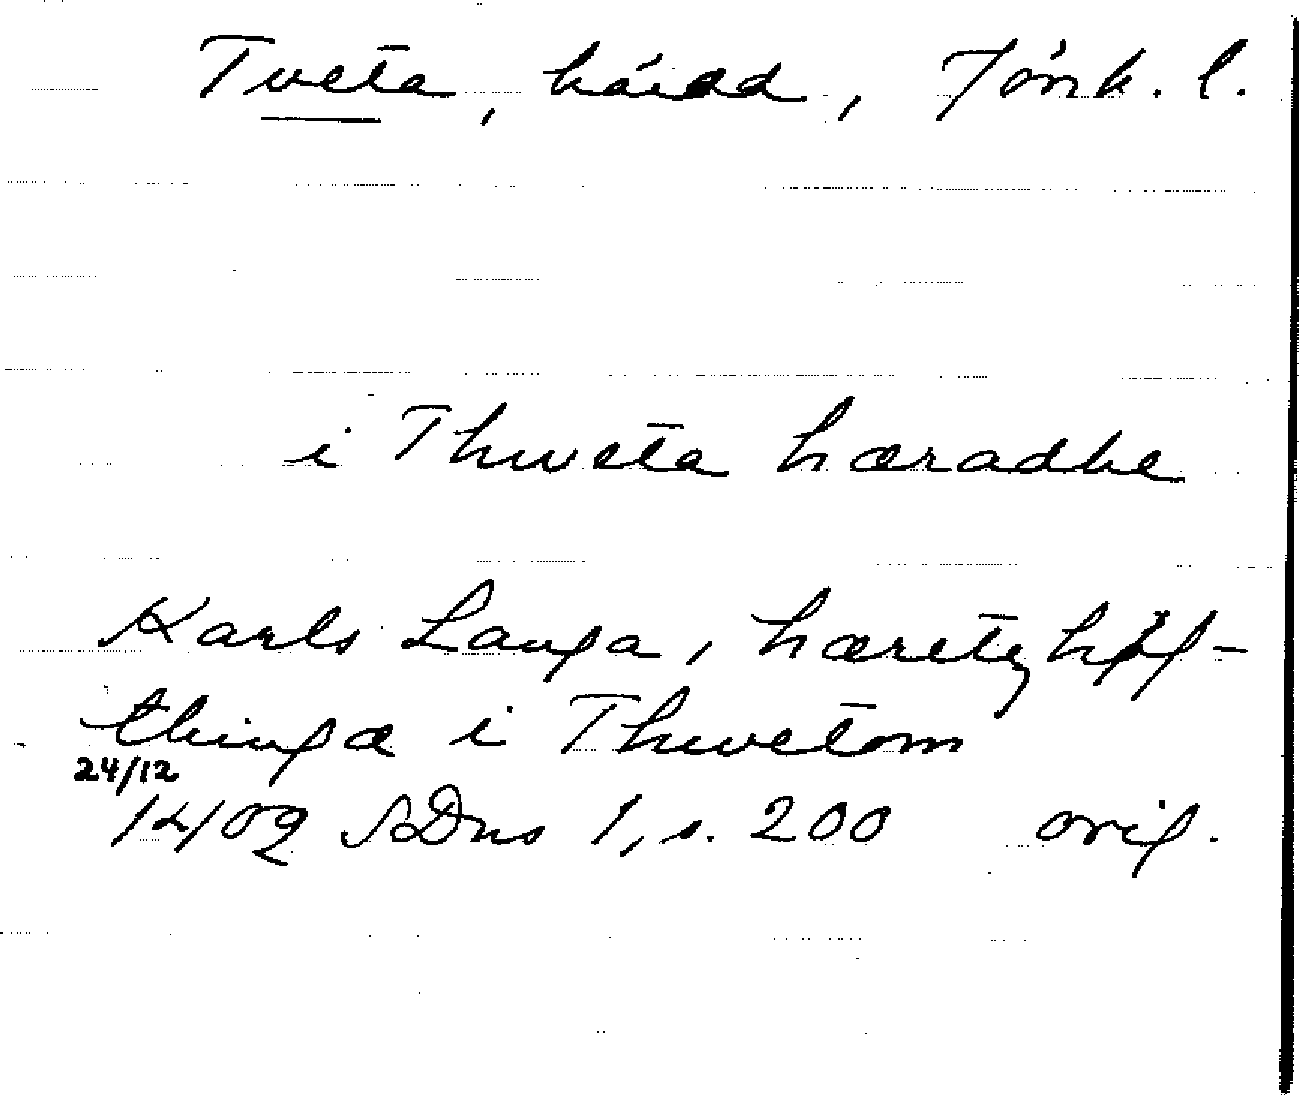 Tveta, härad, Jönk. l.
i Thweta hæradhe
Karls Langa, hæretz høf-
thinga i Thwetom
24/12
1409 SDns 1, s. 200 orig.